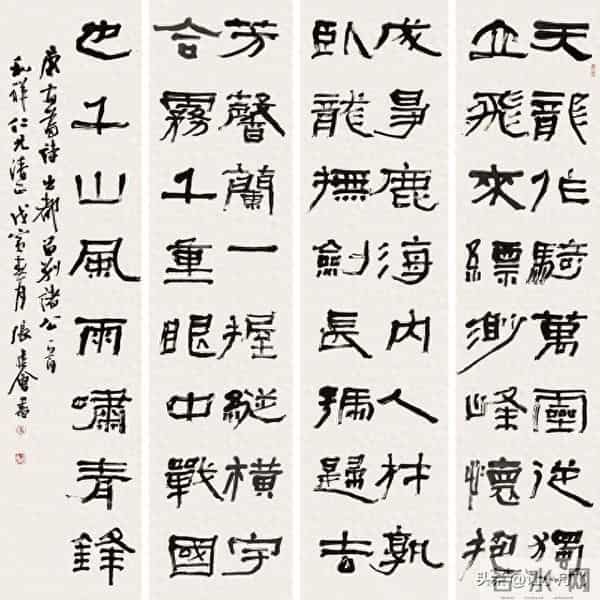 天龍作騎萬靈從獨
立飛來縹緲峰懷抱
成爭鹿海內人材孰
臥龍撫劍長號歸去
芳馨蘭一握縱橫宇
合霧千重眼中戰國
也千山風雨嘯青鋒
康有為詩出都留別諸公一首
祥仁兄清正戊寅春月張建會書
头条